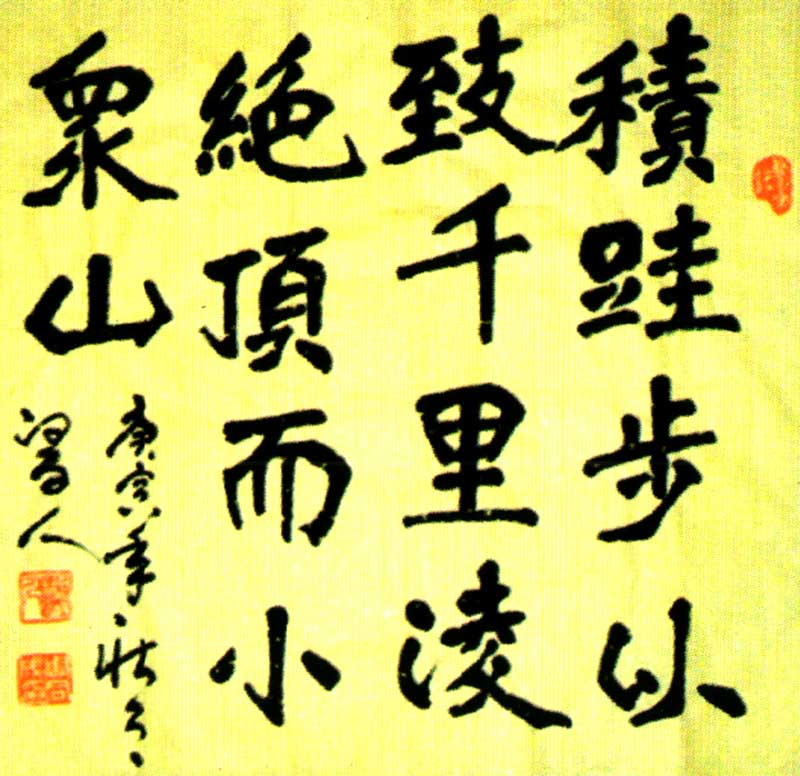 積跬步以
致千里淩
絕頂而小
衆山
庚寅年秋
人